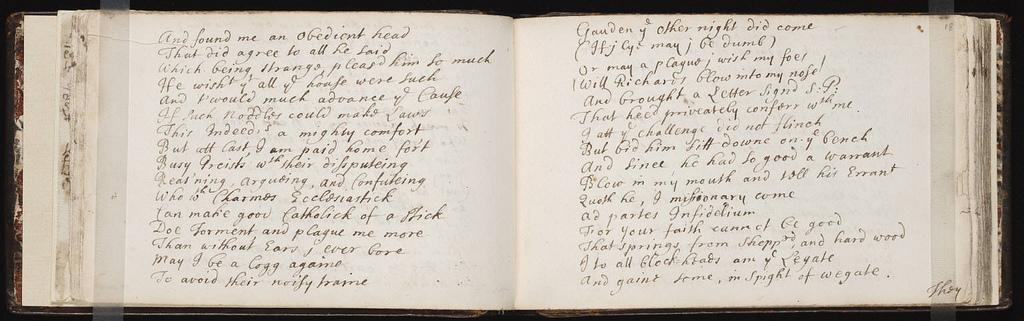 And found me an obedient head
That did agree to all he said
Which being strange, pleas'd him so much
He wisht yt all ye house were such
And t'would much advance ye Cause
If such Noddles could make Laws
This Indeed's a mighty comfort
But att last I am paid home for't
Busy Preists wth their disputeing
Reas'ning, argueing, and Confuteing
Who wth Charmes Ecclesiastick
Can make good Catholick of a stick
Doe Torment and plague me more
Than without Ears j ever bore
May I be a Logg againe
To avoid their noisy traine
18
Gauden ye other night did come
(If j Lye may j be dumb)
Or may a plague j wish my foes
(Will Richards blow into my nose)
And brought a Letter Signd S: P:
That hee'd privately conferr wth me
I att ye challenge did not flinch
But bid him sitt downe on ye bench
And since he had so good a warrant
Blow in my mouth and tell his Errant
Quoth he, I missionary come
Ad partes Infidelium
For your faith cannot be good
That springs from and hard wood
I to all block-heads am ye Legate
And gaine some, in spight of wegate.
They